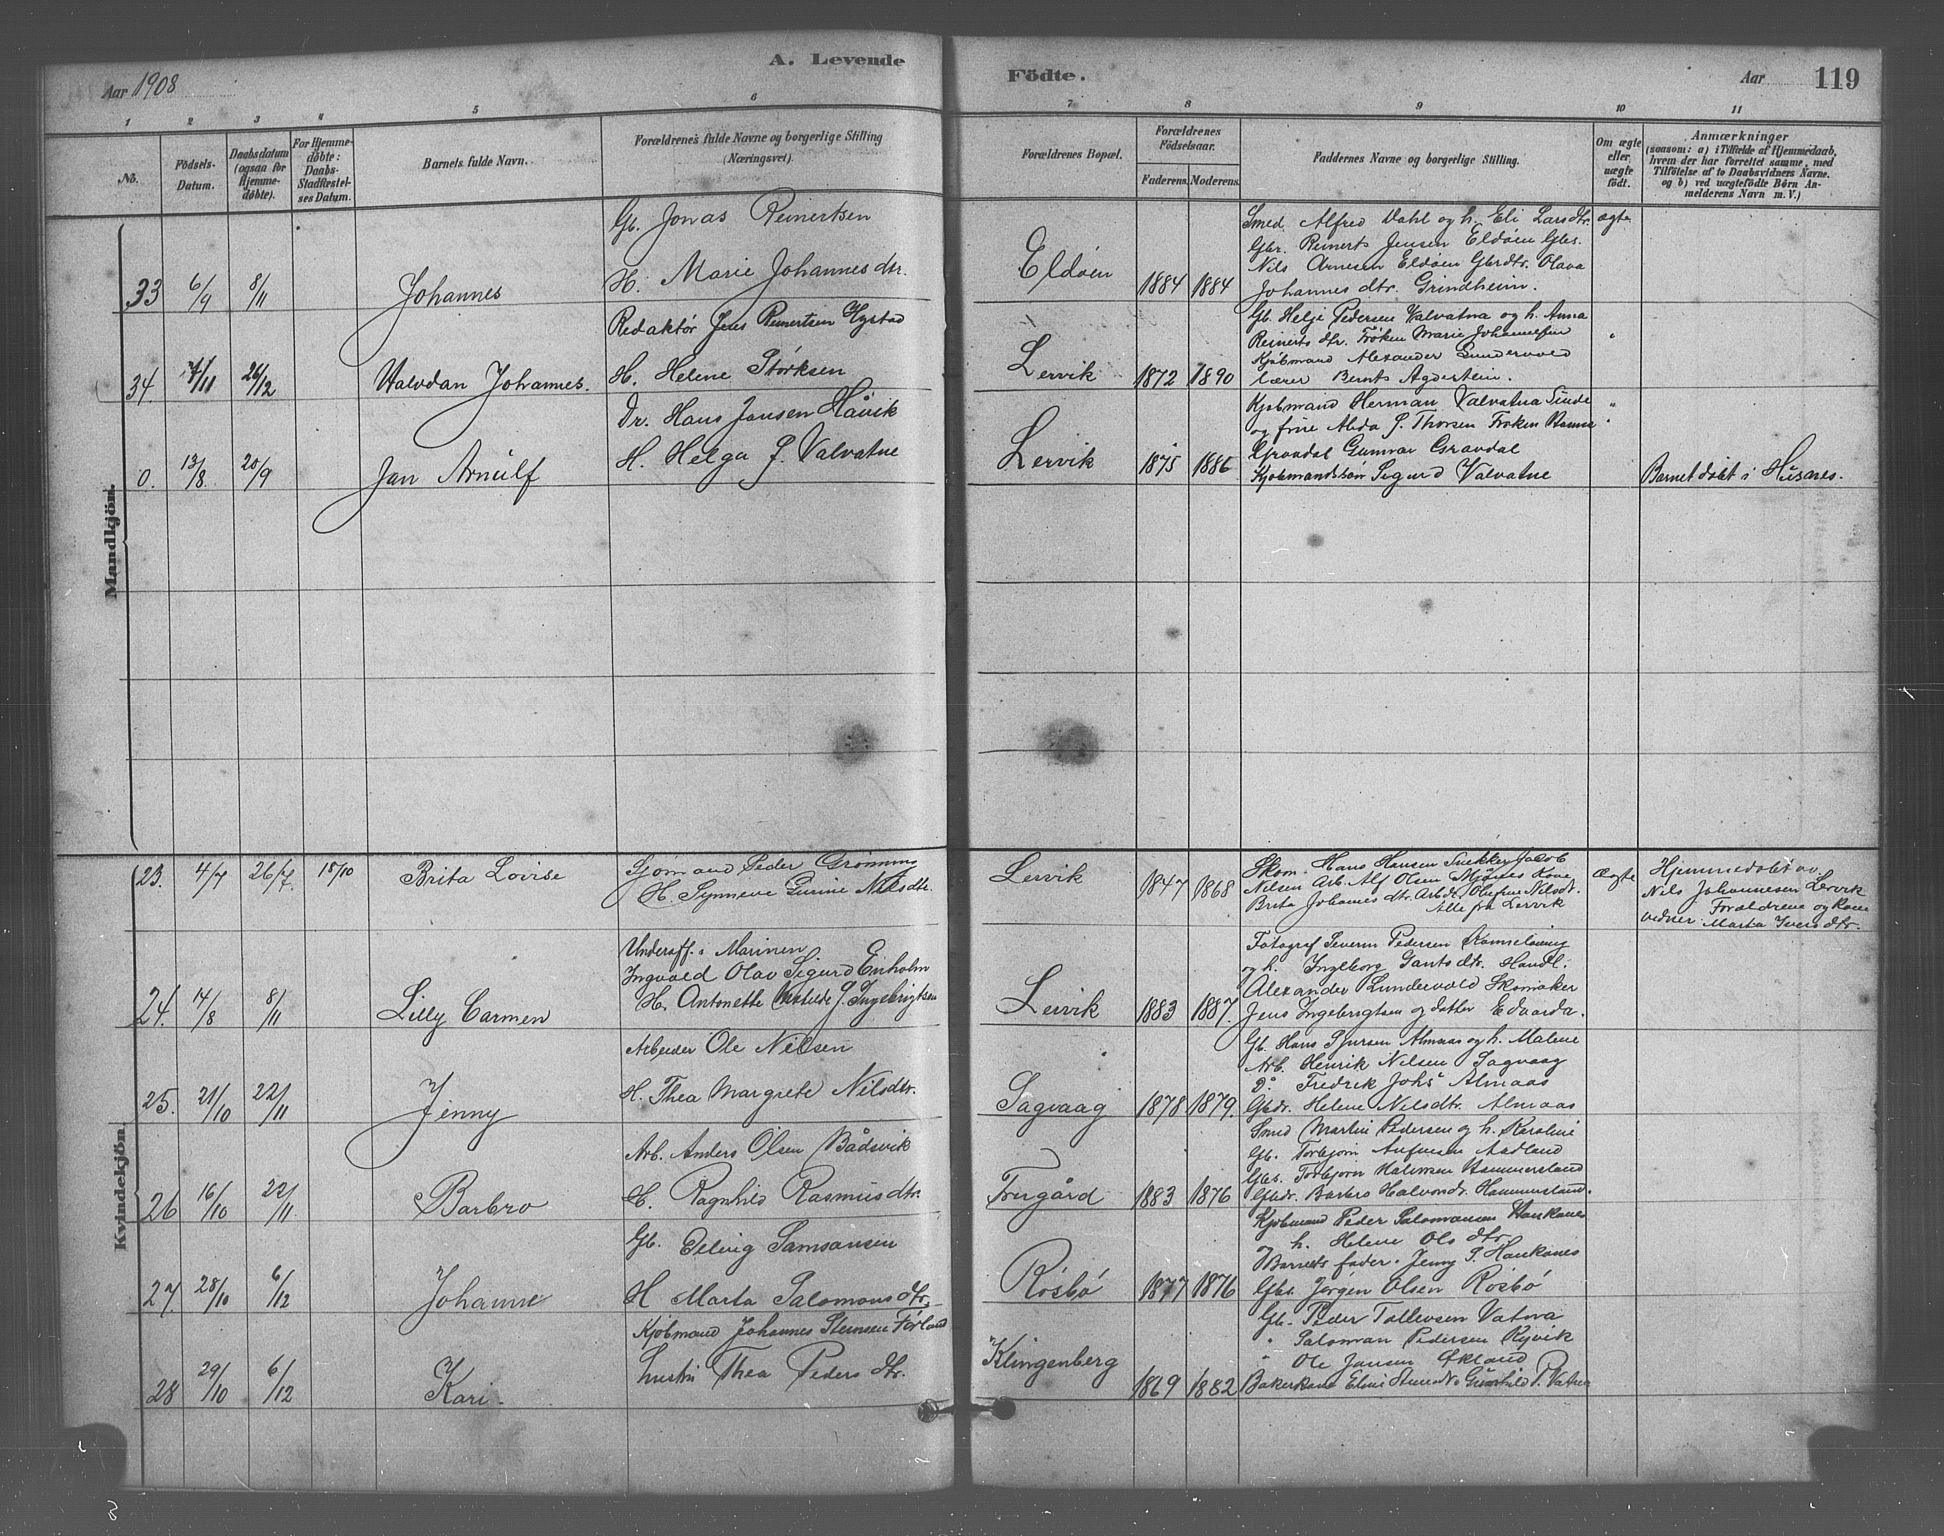 Aar 1908
A. Levende
Födte.
Aar
119
1 2 3 4 5 6 7 8 9 10 11
No.
Födsels-Datum.
Daabsdatum (ogsaa for Hjemmedöbte).
For Hjemmedöbte: Daabs-Stadfæstelses Datum.
Barnets fulde Navn.
Forældrenes fulde Navne og borgerlige Stilling (Næringsvei).
Forældrenes Bopæl.
Forældrenes Födselsaar.
Faderens. Moderens.
Faddernes Navne og borgerlige Stilling.
Om ægte eller uægte födt.
Anmærkninger (saasom: a) i Tilfælde af Hjemmedaab, hvem der har forrettet samme, med Tilföielse af to Daabsvidners Navne. og b) ved uægtefödte Börn Anmelderens Navn m. V.)
Mandkjön.
33 6/9 8/11 Johannes
Gb. Jonas Reinertsen
H. Marie Johannesdtr.
Eldøen 1884 1884
Smed Alfred Dahl og h. Eli Larsdtr.
Gbr. Reinerts Jensen Eldøen Gbs.
Nils Arnesen Eldøen Gbrdtr. Olava
Johannesdtr. Grindheim.
ægte
34 17/11 26/12 Halvdan Johannes.
Redaktør Jens Reinertsen Hystad
H. Helene Størksen
Lervik 1872 1890
Gb. Helje Pedersen Valvatna og h. Anna
Reinertsdtr. Frøken Marie Johannessen
Kjøbmand Alexander Lundervold
lærer Bernts Agdestein.
"
0. 13/8 20/9 Jan Arnulf
Dr. Hans Jansen Håvik
H. Helga J. Valvatne
Lervik 1875 1886
Kjøbmand Herman Valvatna
og frue Alida J. Thorsen Frøken Hanna
Gravdal Gunnar Gravdal
Kjøbmandssøn Sigurd Valvatne
"
Barnet døbt i Husnes.
Kvindekjön.
23. 4/7 26/7. 18/10 Brita Lovise
Sjømand Peder Grønning
H. Synneve Gurine Nilsdtr.
Lervik 1847 1868
Skom. Hans Hansen Snekker Jacob
Nilsen Arb. Alf Olsen Mjønes Kone
Brita Johanesdtr. Arbdt. Nilsdt.
Alle fra Lervik
Ægte
Hjemmedøbt av
Nils Johannesen Lervik
Forældrene og Kone
vidner. Marta Iversdtr.
24. 14/8 8/11 Lilly Carmen
Underoff. i Marinen
Ingvald Olav Sigurd Enholm
H. Antonette J. Ingebrigtsen
Lervik 1883 1887.
Fotograf Severin Pedersen
og h. Ingeborg Handl.
Alexander Lundervold Skomaker
Jens Ingebrigtsen og datter Edvarda.
25. 21/10 22/11 Jenny
Arbeider Ole Nilsen
H. Thea Margrete Nilsdtr.
Sagvaag 1878 1879.
Gb. Hans Sjursen Almaas og h. Malene
Arb. Henrik Nilsen Sagvaag
Do. Fredrik Johs Almaas
Gbdr. Helene Nilsdtr. Almaas
26 16/10 22/11 Barbro
Arb. Anders Olsen Bådsvik
H. Ragnhild Rasmusdtr.
1883 1876
Smed Martin Pedersen og h. Karoline
Gb. Torbjørn Aadland
Gbs. Torbjørn Halvorsen Hammersland
Gbdr. Barbro Halvorsdt. Hammersland.
27. 28/10 6/12 Johanne
Gb. Samsonsen
H Marta Salomonsdtr.
Røsbø 1877 1876
Kjøbmand Peder Salomonsen Haukanes
og h. Helene Olsdtr.
Barnets fader. Jenny S. Haukanes
Gbs. Jørgen Olsen Røsbø
28 29/10 6/12 Kari.
Kjøbmand Johannes Steinsen Førland
hustru Thea Pedersdtr.
Klingenberg 1869 1882
Gb. Peder Tollevsen Vatna
" Saloman Pedersen
" Ole Jansen Økland
Bakerkone Gunhild P. Vatna